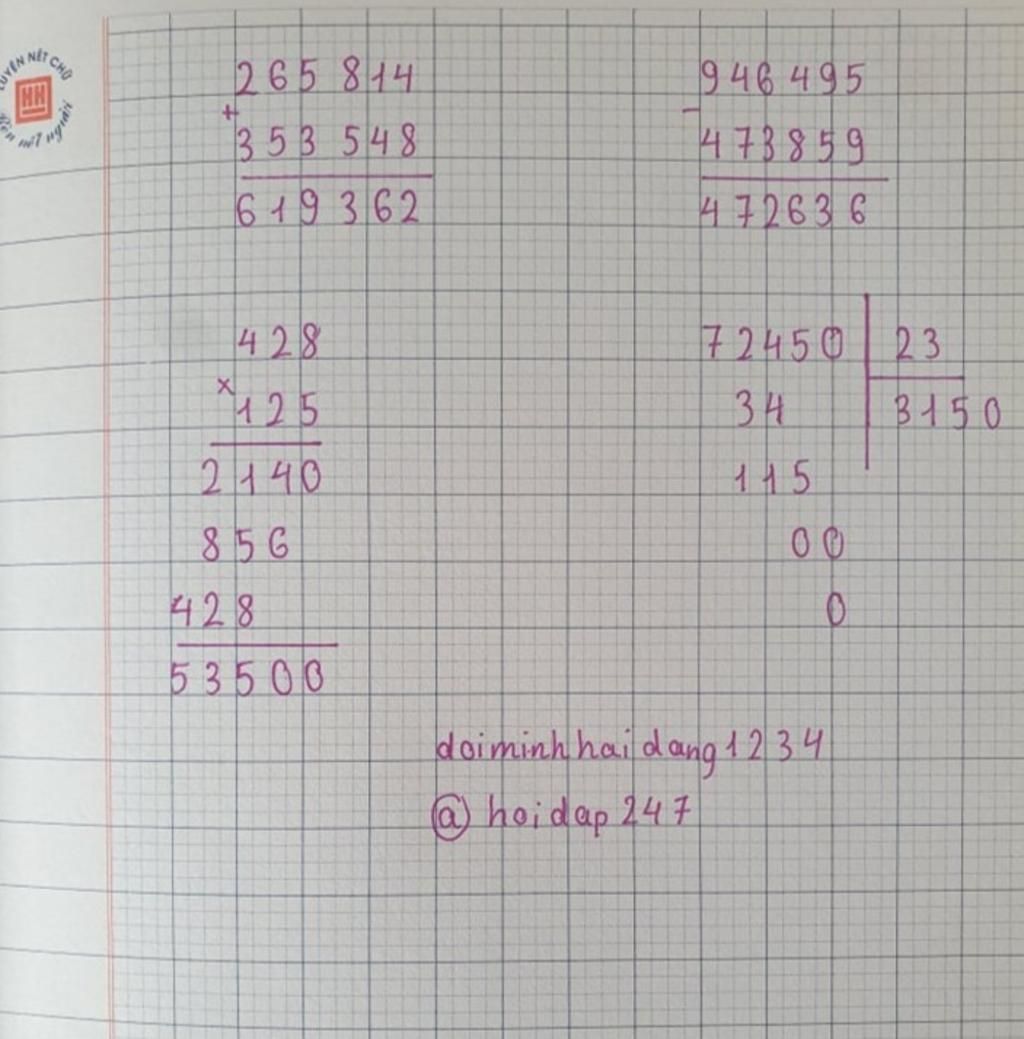 LUYỆN NÉT CHỮ
HH
Rèn nết người
265 814
+
353 548
619 362
946 495
-
473859
472636
428
x
125
2140
856
428
53500
72450 23
34 3150
115
00
0
doiminhhaidang1234
@ hoidap247